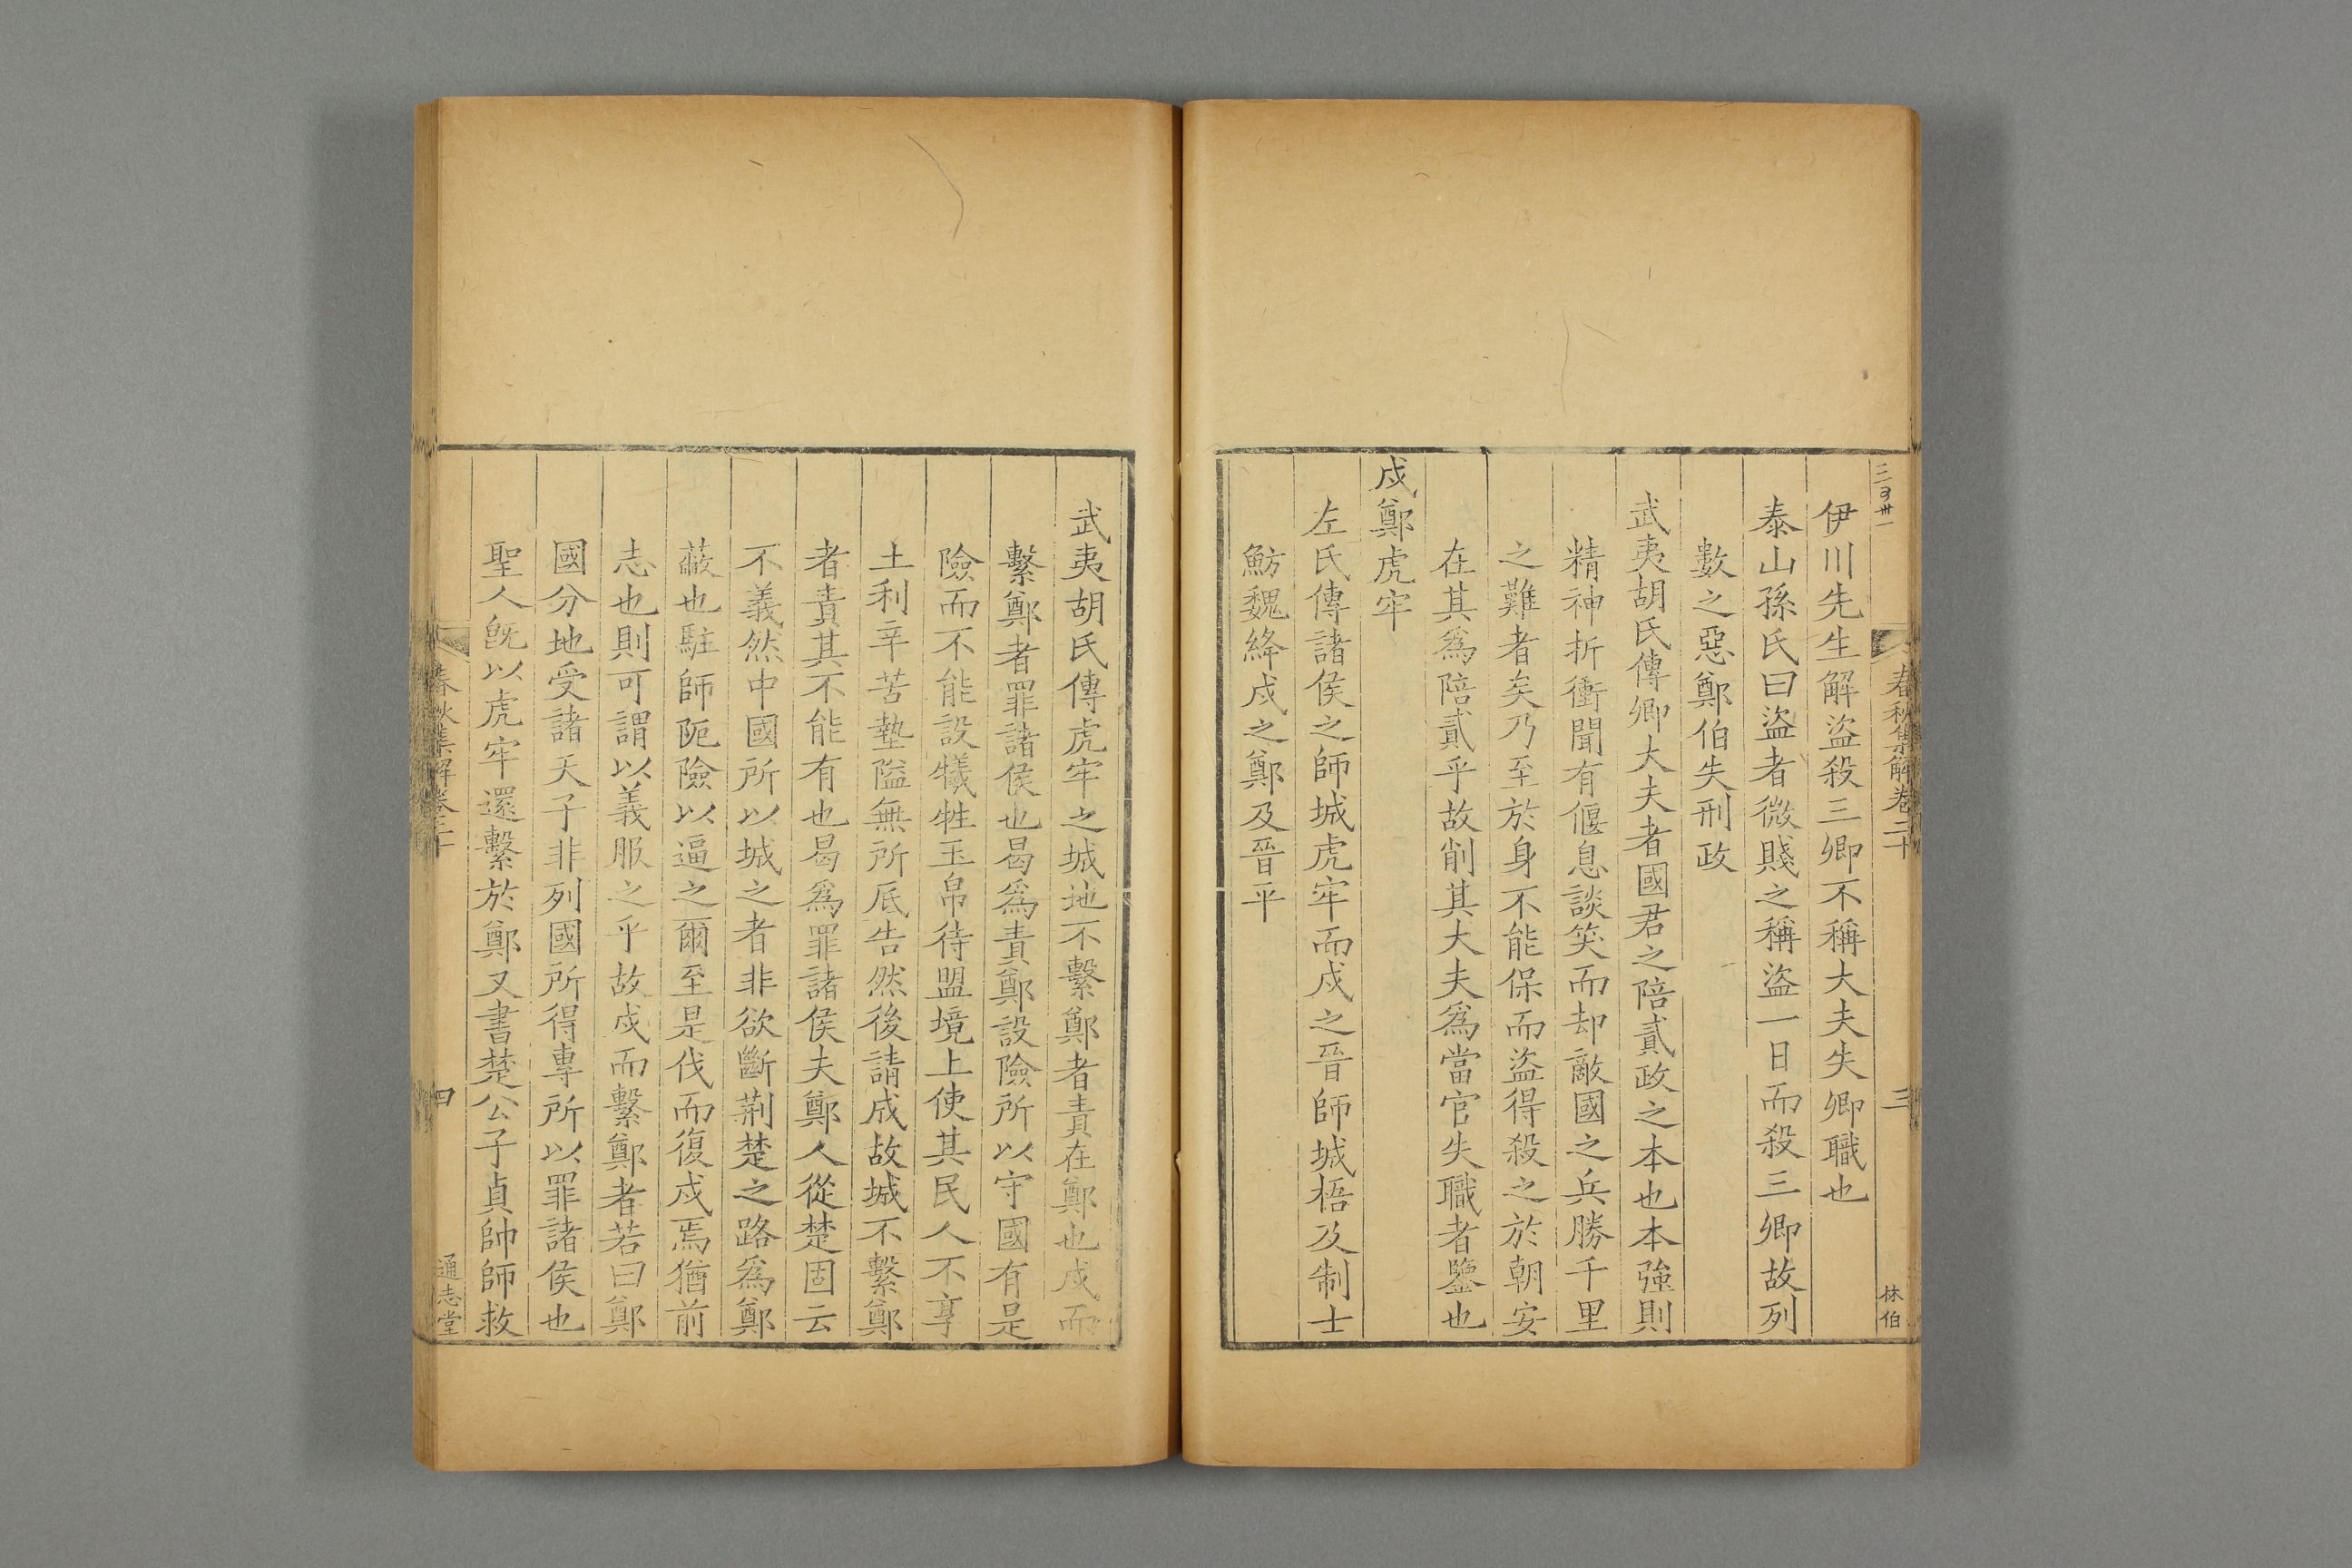 春秋集解卷二十
三
林伯
伊川先生解盜殺三卿不稱大夫失卿職也
泰山孫氏曰盜者微賤之稱盜一日而殺三卿故列
數之惡鄭伯失刑政
武夷胡氏傳卿大夫者國君之陪貳政之本也本強則
精神折衝聞有偃息談笑而却敵國之兵勝千里
之難者矣乃至於身不能保而盜得殺之於朝安
在其爲陪貳乎故削其大夫爲當官失職者鑒也
戍鄭虎牢
左氏傳諸侯之師城虎牢而戍之晉師城梧及制士
魴魏絳戍之鄭及晉平
武夷胡氏傳虎牢之城地不繫鄭者責在鄭也戍而
繫鄭者罪諸侯也曷爲責鄭設險所以守國有是
險而不能設犧牲玉帛待盟境上使其民人不享
土利辛苦墊隘無所厎告然後請成故城不繫鄭
者責其不能有也曷爲罪諸侯夫鄭人從楚固云
不義然中國所以城之者非欲斷荆楚之路爲鄭
蔽也駐師阨險以逼之爾至是伐而復戍焉猶前
志也則可謂以義服之乎故戍而繫鄭者若曰鄭
國分地受諸天子非列國所得專所以罪諸侯也
聖人旣以虎牢還繫於鄭又書楚公子貞帥師救
春秋集解卷二十
四
通志堂